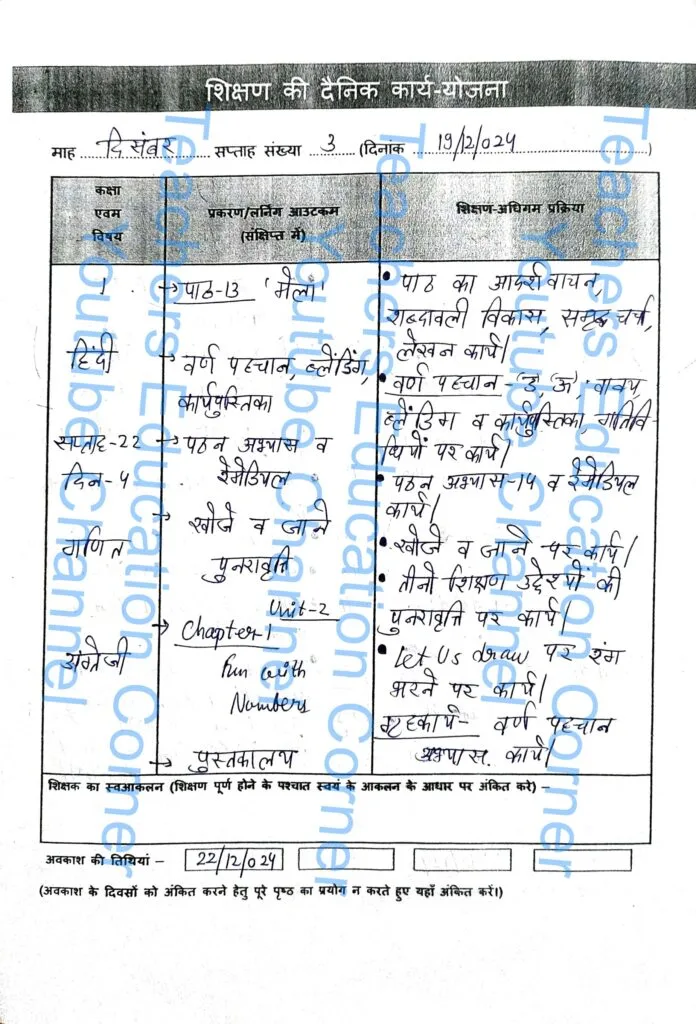 शिक्षण की दैनिक कार्य-योजना
माह दिसंबर सप्ताह संख्या 3 (दिनांक 19/12/024)
कक्षा एवम विषय
प्रकरण/लर्निंग आउटकम (संक्षिप्त में)
शिक्षण-अधिगम प्रक्रिया
1
हिंदी
सप्ताह-22
दिन-4
गणित
अंग्रेजी
→ पाठ-13 'मेला'
→ वर्ण पहचान, ब्लेंडिंग,
कार्यपुस्तिका
→ पठन अभ्यास व
रेमेडियल
→ खोजे व जाने
पुनरावृत्ति
Unit-2
→ Chapter-1
Fun with
Numbers
→ पुस्तकालय
• पाठ का आदर्श वाचन,
शब्दावली विकास, समृद्ध चर्चा,
लेखन कार्य।
• वर्ण पहचान - 'उ, ऊ', वाक्य,
ब्लेंडिंग व कार्यपुस्तिका, गतिवि-
धियों पर कार्य।
• पठन अभ्यास-14 व रेमेडियल
कार्य।
• खोजे व जाने पर कार्य।
• तीनो शिक्षण उद्देश्यों की
पुनरावृत्ति पर कार्य।
• Let Us draw पर रंग
भरने पर कार्य।
गृहकार्य- वर्ण पहचान
अभ्यास कार्य।
शिक्षक का स्वआकलन (शिक्षण पूर्ण होने के पश्चात स्वयं के आकलन के आधार पर अंकित करे) –
अवकाश की तिथियां – 22/12/024
(अवकाश के दिवसों को अंकित करने हेतु पूरे पृष्ठ का प्रयोग न करते हुए यहाँ अंकित करें।)
Teachers Education Corner
Youtube Channel
Teachers Education Corner
Youtube Channel
Teachers Education Corner
Youtube Channel